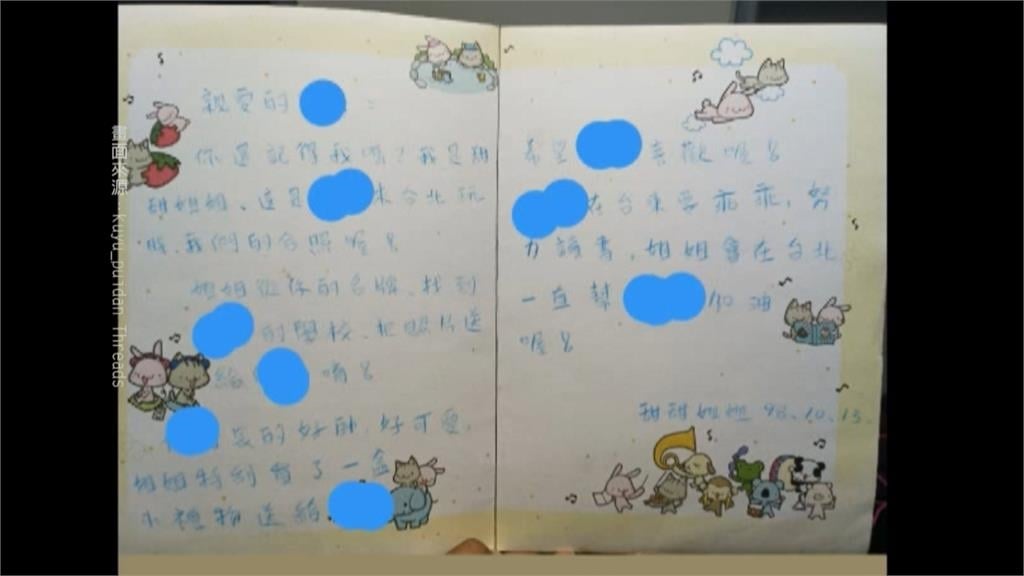 親愛的 :
你還記得我嗎?我是甜
甜姐姐、這是 來台北玩
時、我們的合照喔!
姐姐從你的名牌、找到
的學校、把照片送
給 唷!
真的好帥,好可愛,
姐姐特別買了一盒
小禮物送給
希望 喜歡喔!
在台東要乖乖,努
力讀書,姐姐會在台北
一直幫 加油
喔!
甜甜姐姐 98.10.13.
畫面來源 kuyu_pu1dan Threads